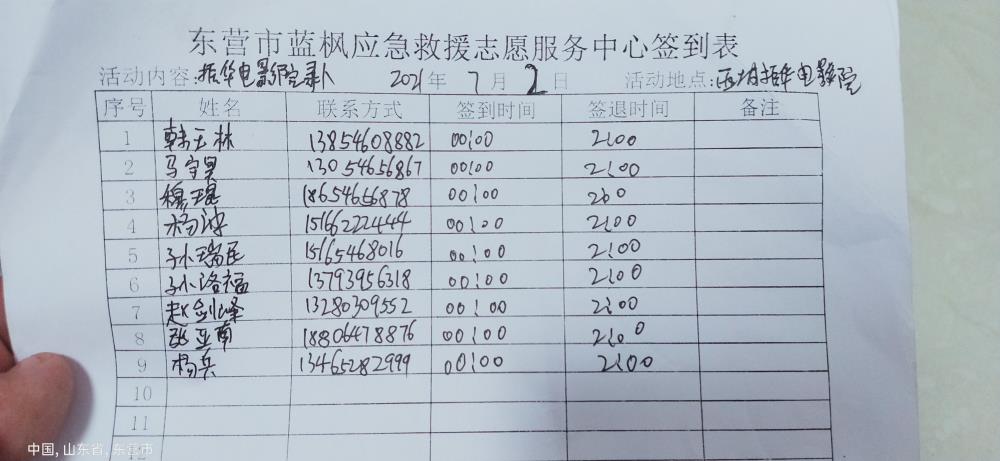 东营市蓝枫应急救援志愿服务中心签到表
活动内容:振华电影院录人 2021年 7月 2日 活动地点:西城振华电影院
序号 姓名 联系方式 签到时间 签退时间 备注
1 韩玉林 13854608882 00:00 2:00
2 马守昊 13054656867 00:00 2:00
3 穆琨 18654656878 00:00 2:00
4 杨波 15166222444 00:00 2:00
5 孙瑞民 15165468016 00:00 2:00
6 孙洛福 13793956318 00:00 2:00
7 赵剑峰 13280309552 00:00 2:00
8 张亚南 18806478876 00:00 2:00
9 杨兵 13465282999 00:00 2:00
10
11
中国, 山东省, 东营市